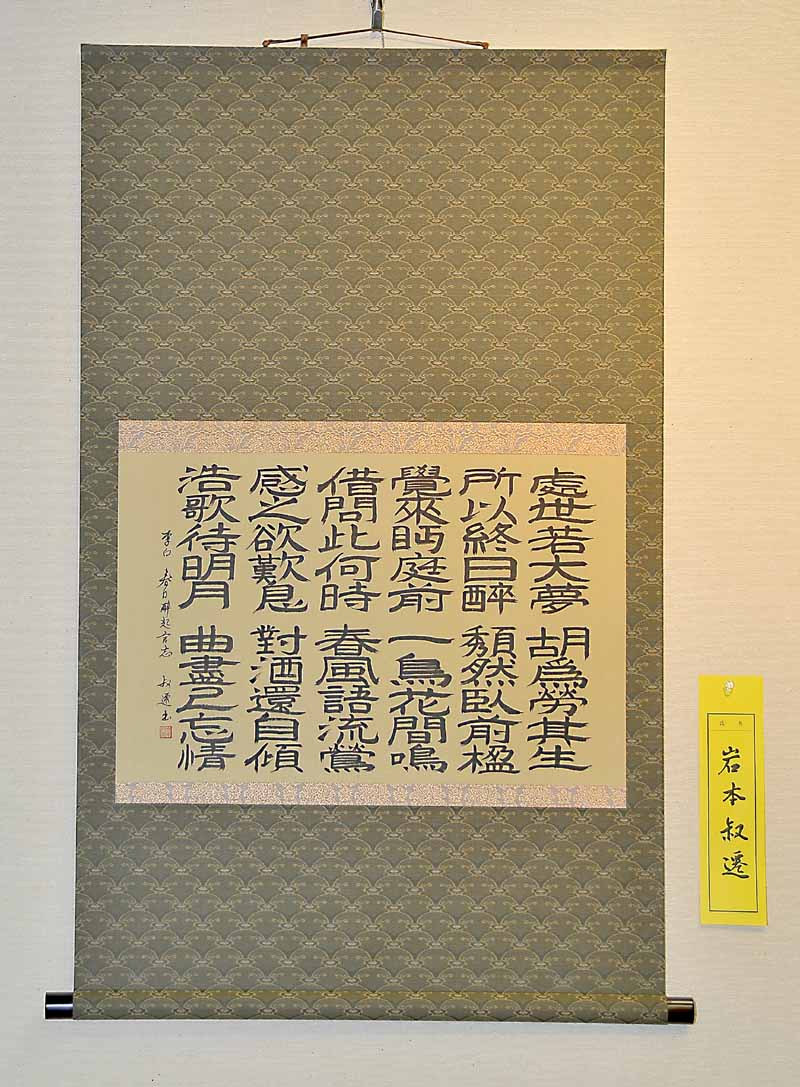 處世若大夢 胡爲勞其生
所以終日醉 頽然臥前楹
覺來眄庭前 一鳥花間鳴
借問此何時 春風語流鶯
感之欲歎息 對酒還自傾
浩歌待明月 曲盡已忘情
李白 春日醉起言志 叔遷書
岩本叔遷